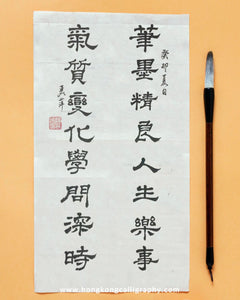 癸卯夏日
筆墨精良人生樂事
氣質變化學問深時
www.hongkongcalligraphy.com